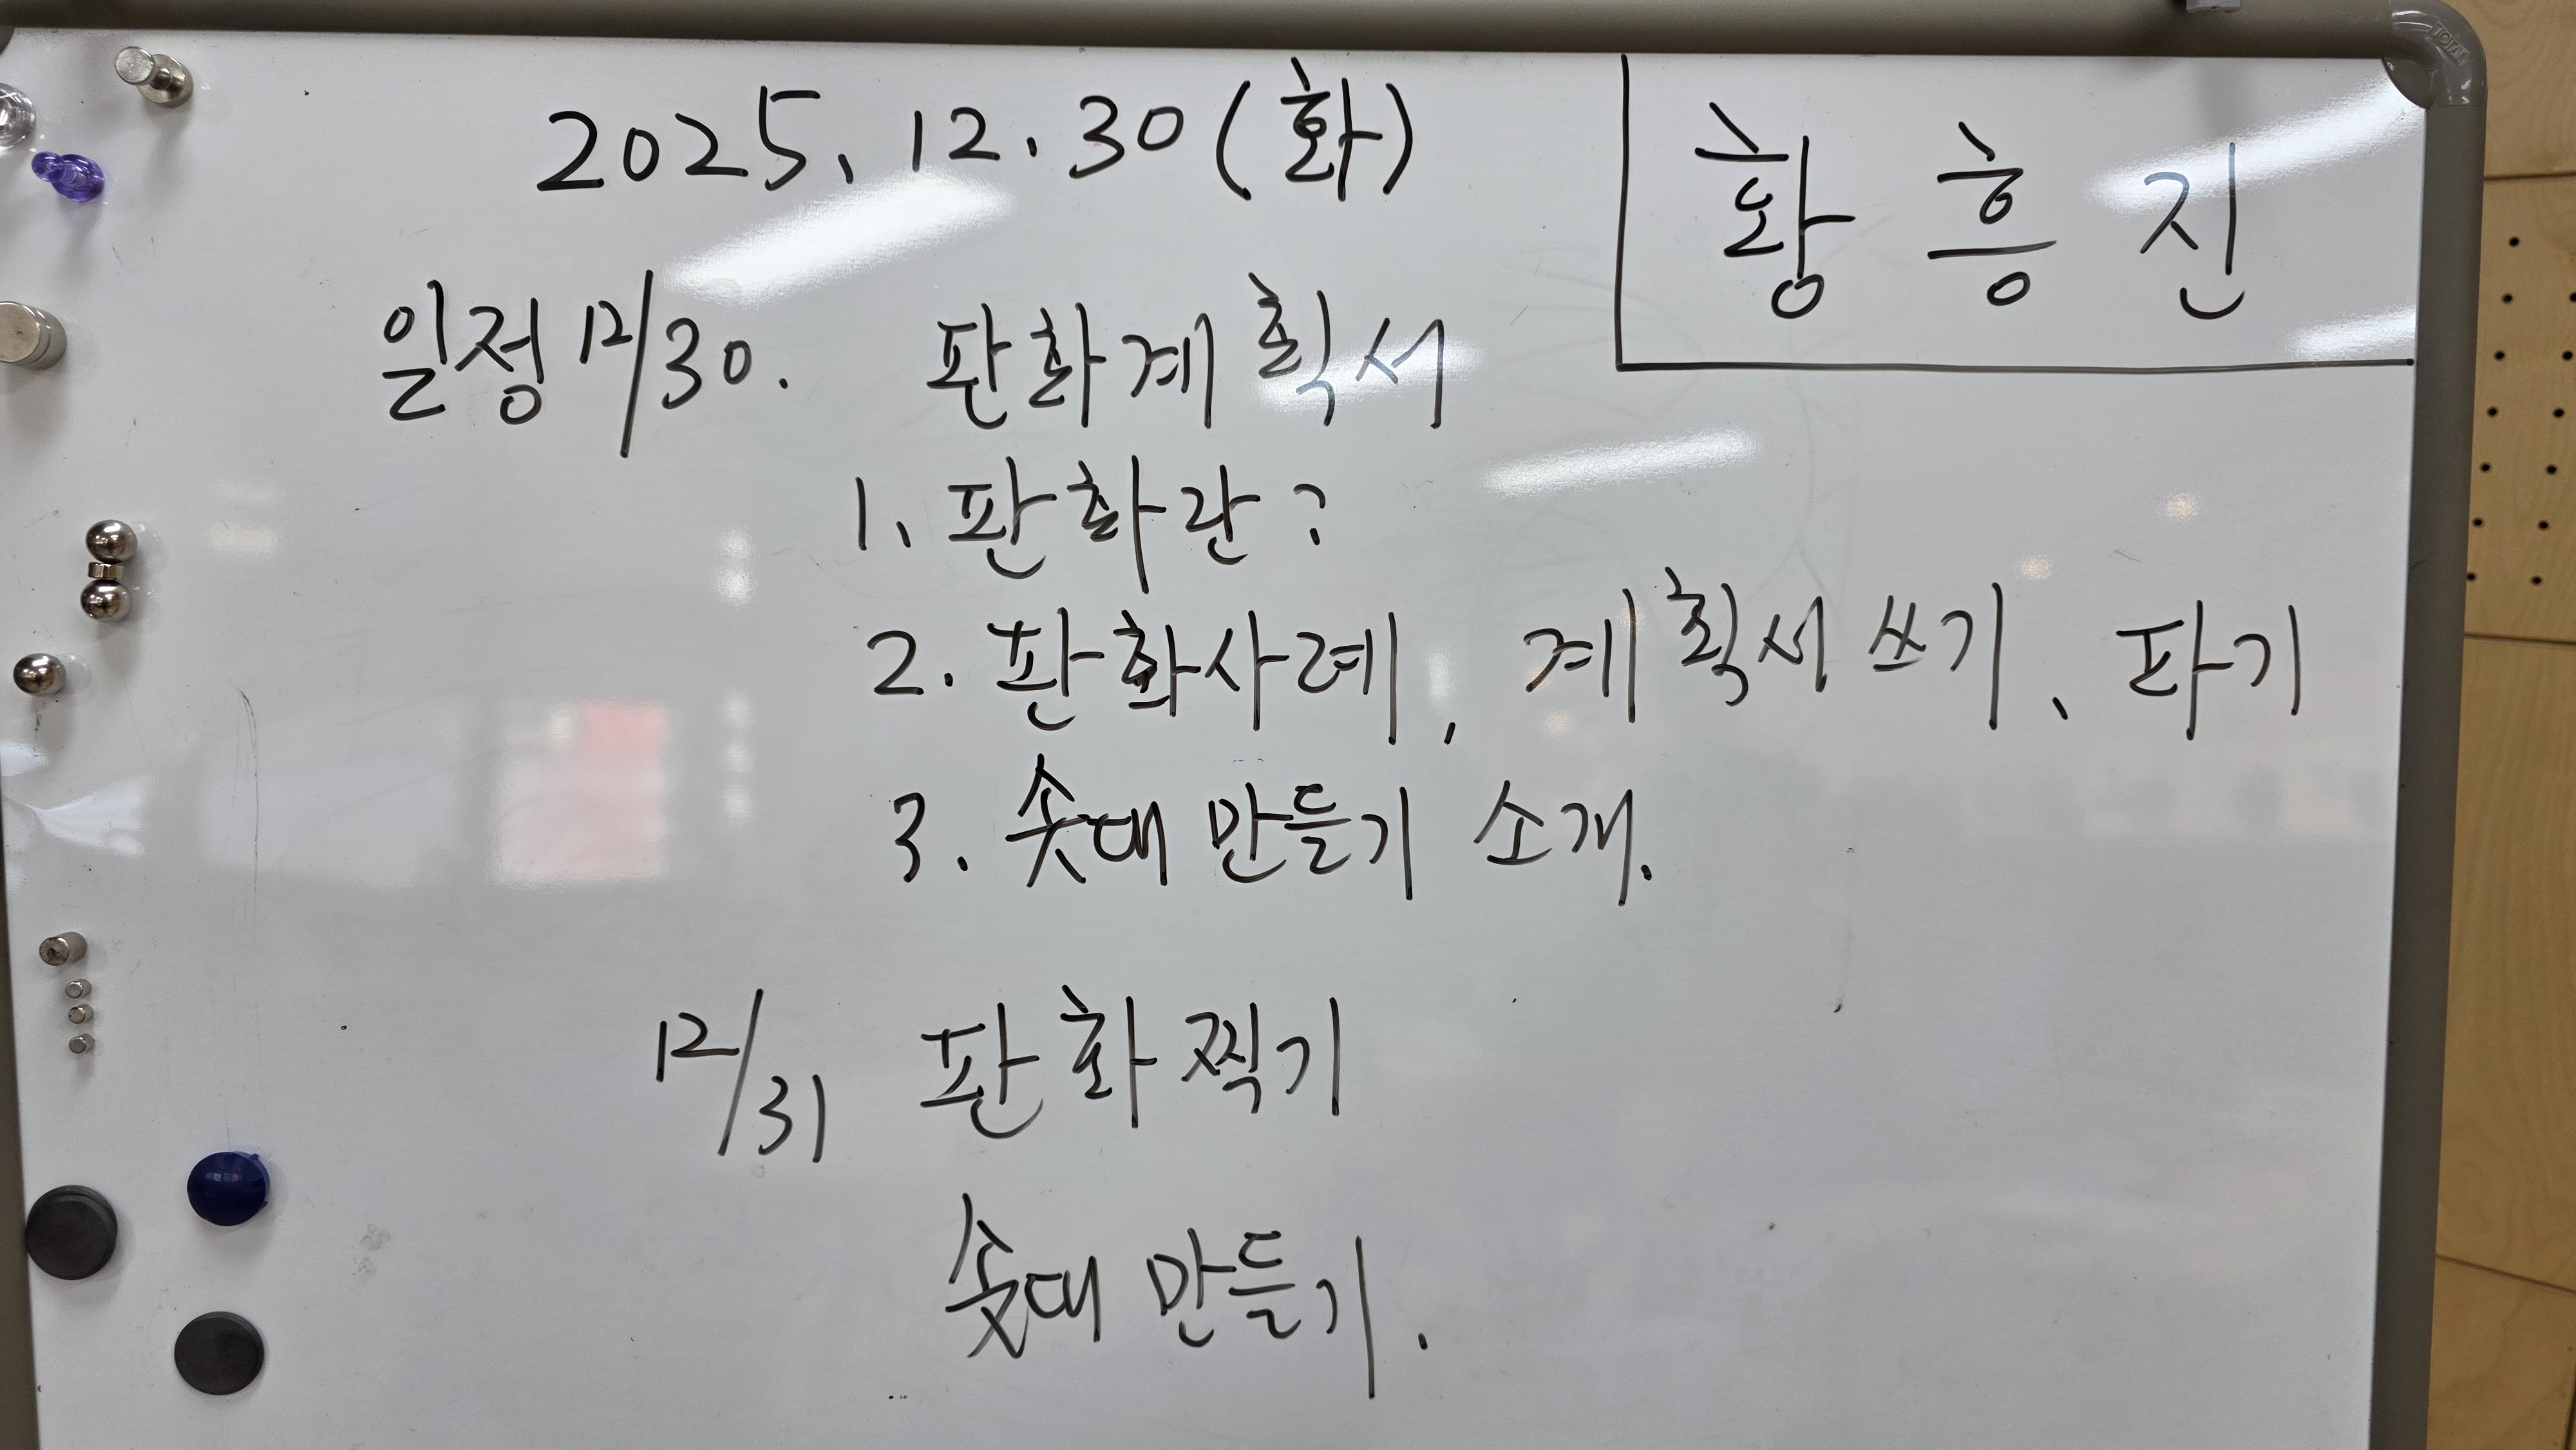 2025. 12. 30 (화)
황흥진
일정 12/30. 판화계획서
1. 판화란?
2. 판화사례, 계획서 쓰기, 파기
3. 솟대 만들기 소개.
12/31 판화찍기
솟대 만들기.